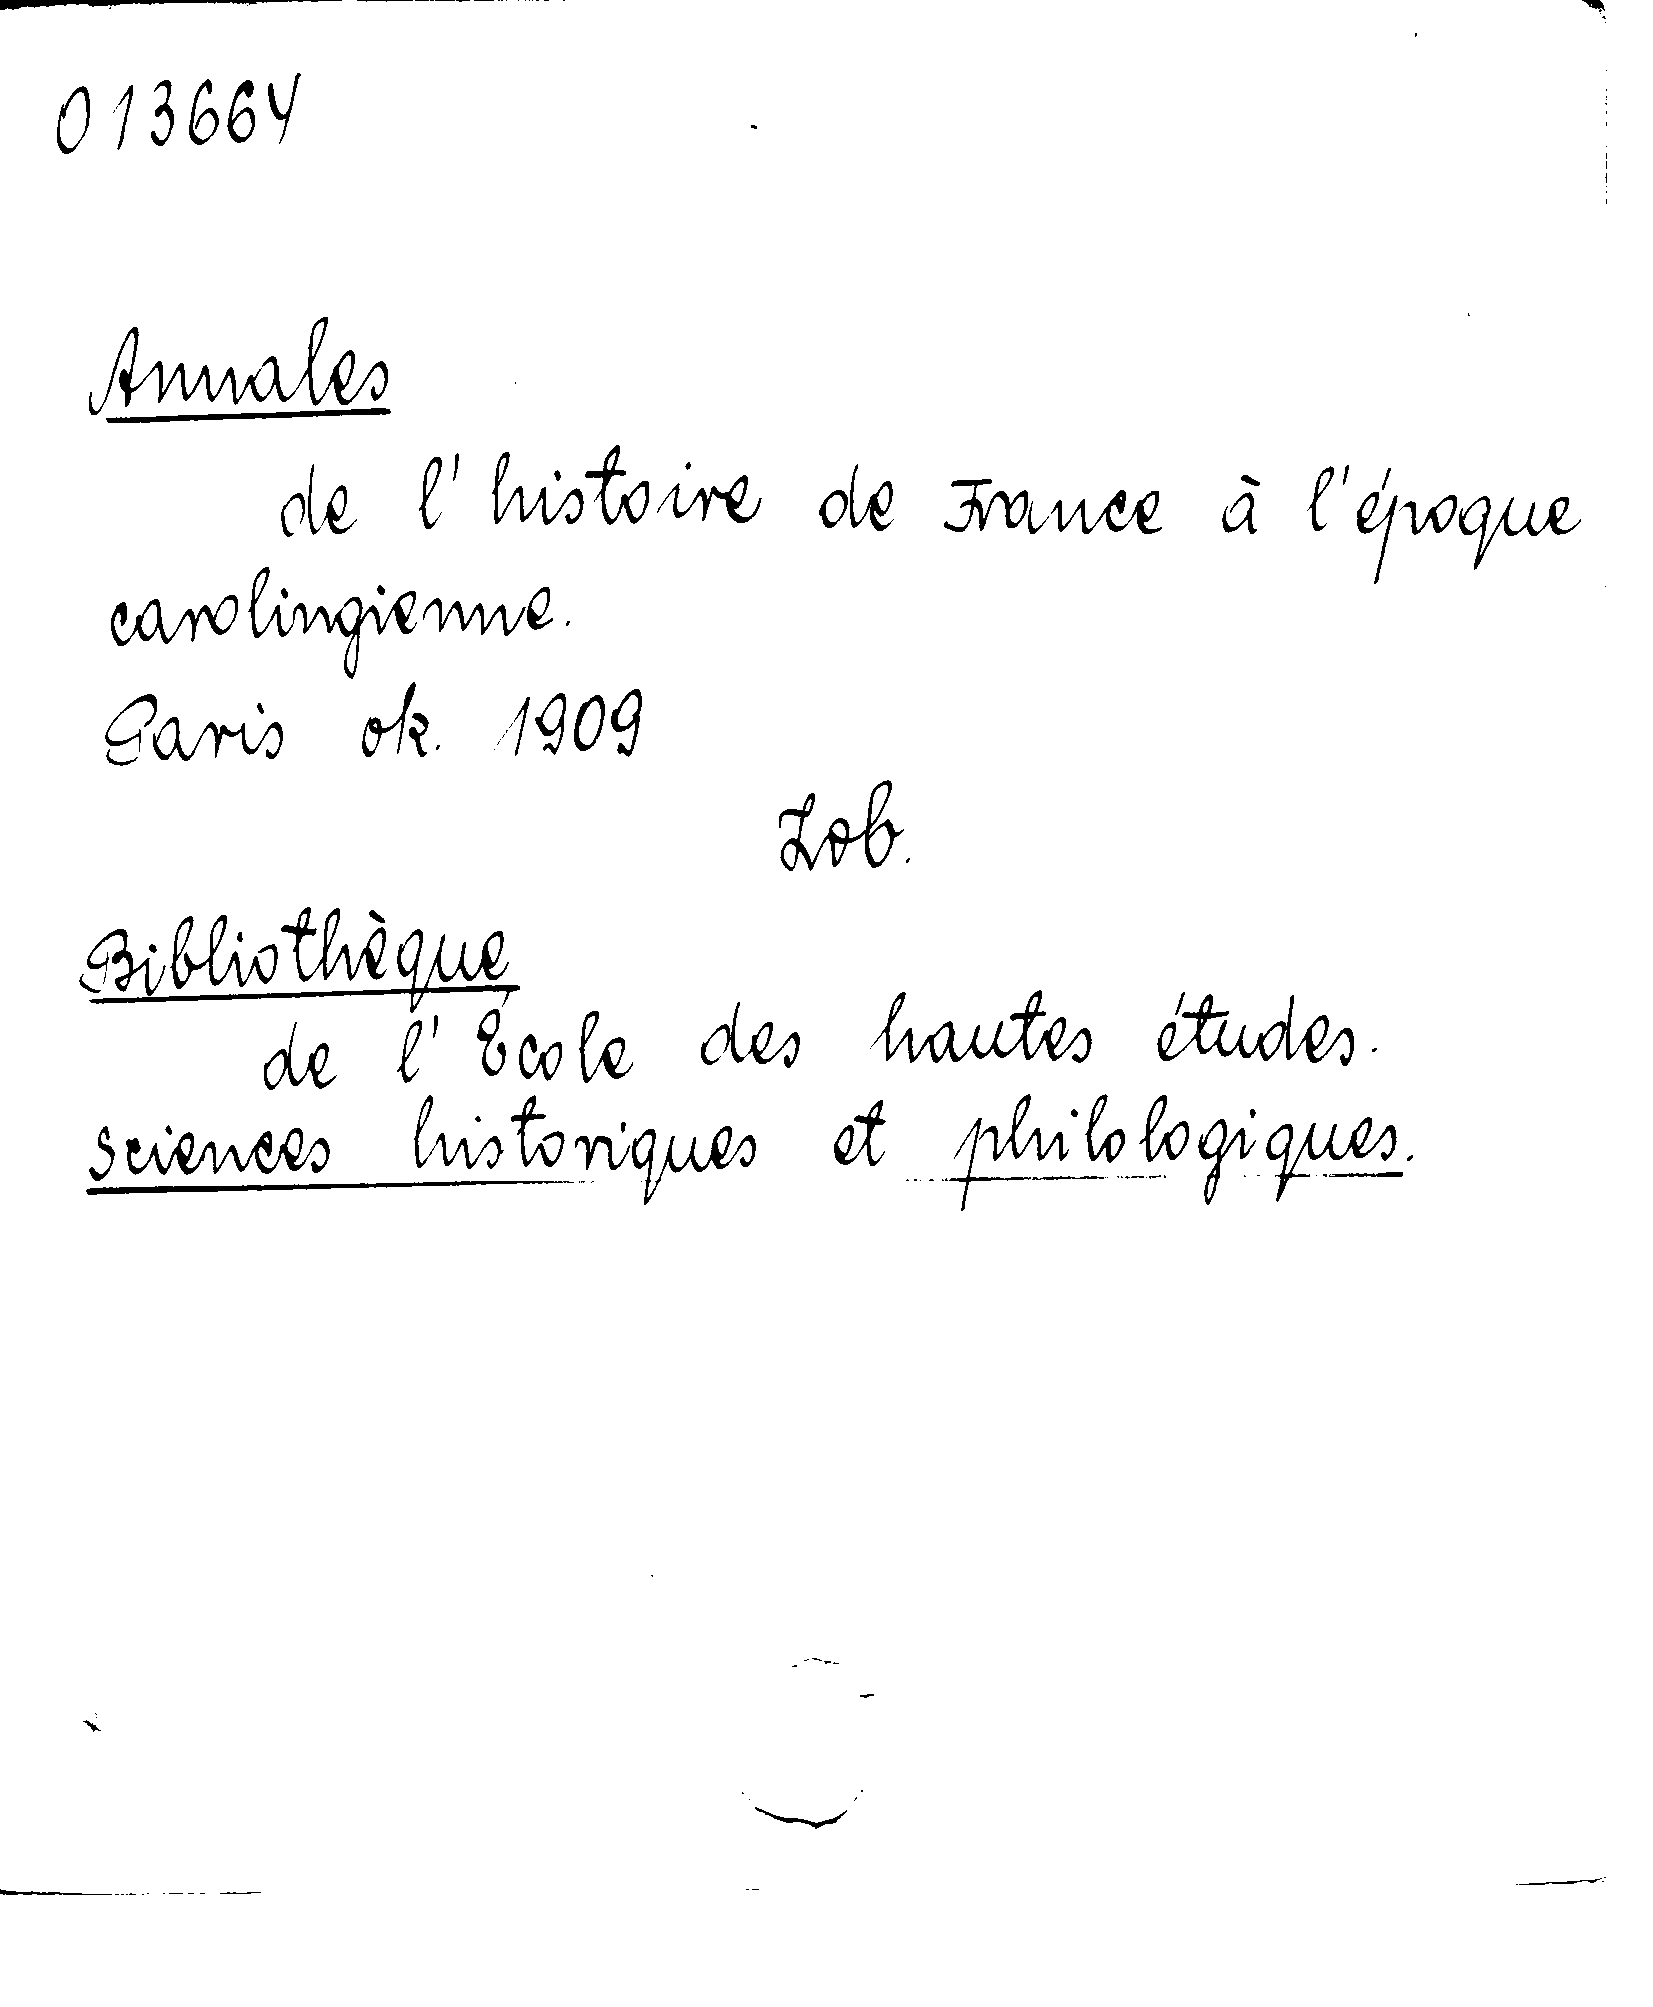 013664
Annales
de l'histoire de France à l'époque
carolingienne.
Paris ok. 1909
Zob.
Bibliothèque
de l'École des hautes études.
Sciences historiques et philologiques.